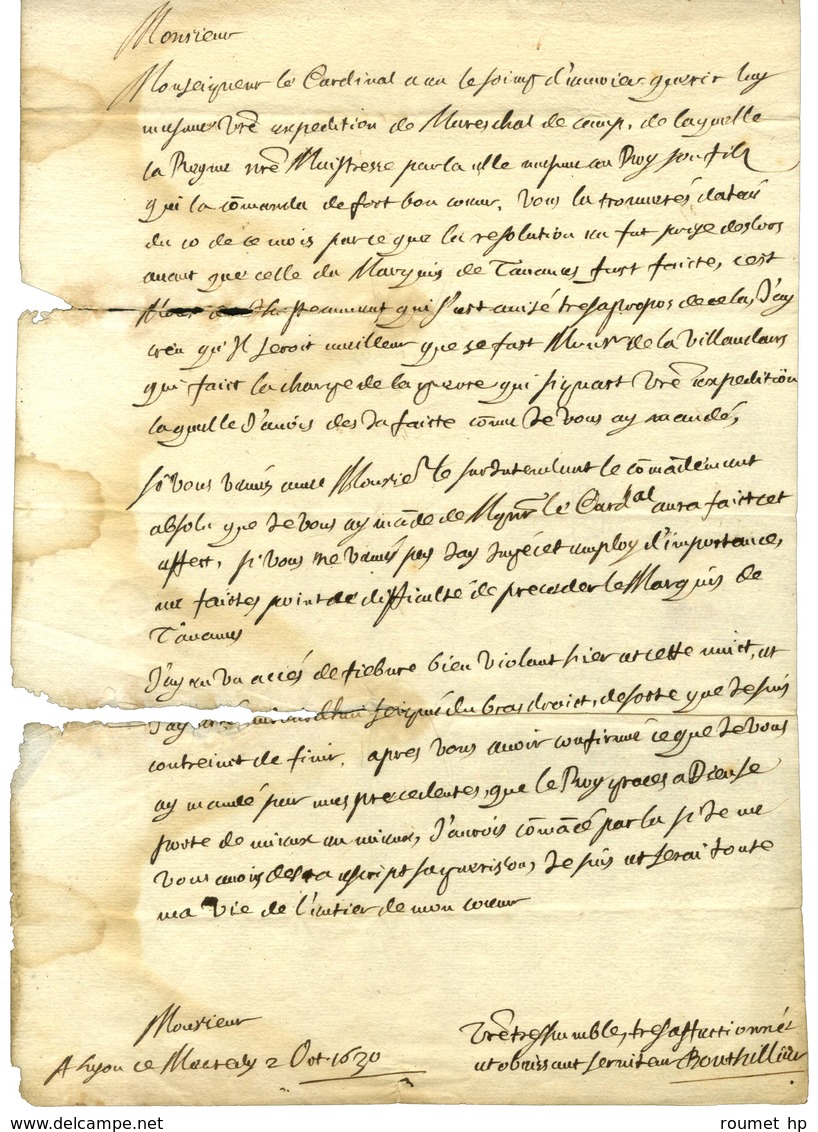 Monsieur
Monseigneur le Cardinal a eu le soing d'envoier querir luy
mesme vre expedition de Mareschal de camp, de laquelle
la Reyne nre Maistresse parla elle mesme au Roy son filz
qui la comanda de fort bon coeur. Vous la trouverés datée
du 10 de ce mois parce que la resolution en fut prise deslors
avant que celle du Marquis de Tavanes fust faicte, c'est
qui s'est avisé tresapropos de cela, J'ay
creu qu'Il seroit meilleur que ce fust Monsr de la Villauclairs
qui faict la charge de la guerre qui signast vre expedition
laquelle J'avois des Ja faicte come Je vous ay mandé,
si vous venés avec Monsieur le surIntendant le comãdement
absolu que Je vous ay mãdé de Mgnr le Cardal aura faict cet
effect, si vous ne venés pas Jay Jugé cet employ d'importance,
ne faictes point de difficulté de preceder le Marquis de
Tavanes
J'ay eu un accés de fiebvre bien violant hier et cette nuict, et
J'ay esté aujourdhui seigné du bras droict, de sorte que Je suis
contreinct de finir. apres vous avoir confirmé ce que Je vous
ay mandé par mes precedentes, que le Roy graces a Dieu se
porte de mieux en mieux, J'aurois comãcé par la si Je ne
vous avois des Ja escript sa guerison, Je suis et serai toute
ma vie de l'entier de mon coeur
Monsieur
A Lyon ce Mecredy 2 Oct 1630
Vre treshumble, tresaffectionné
et obeissant serviteur Bouthillier
roumet hp